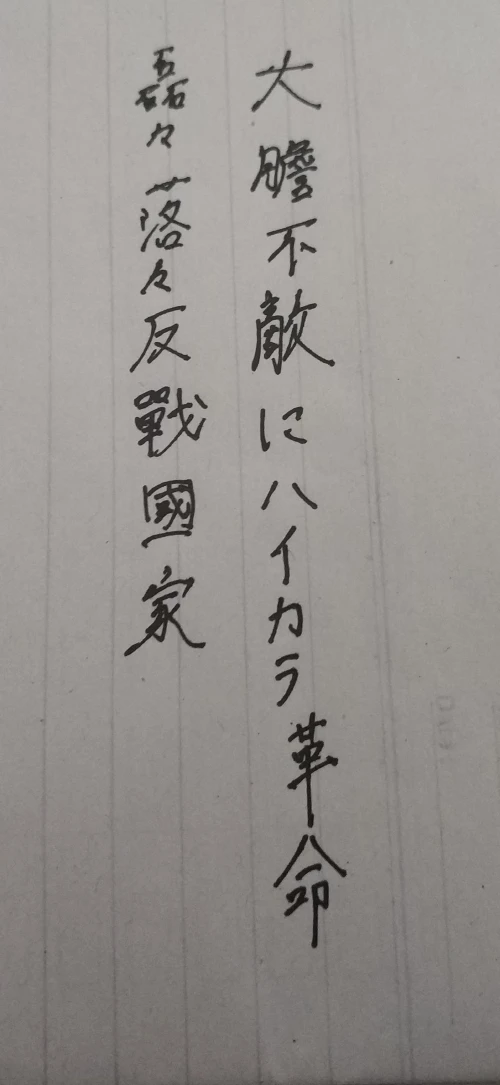 大膽不敵にハイカラ革命
磊々落々反戰國家